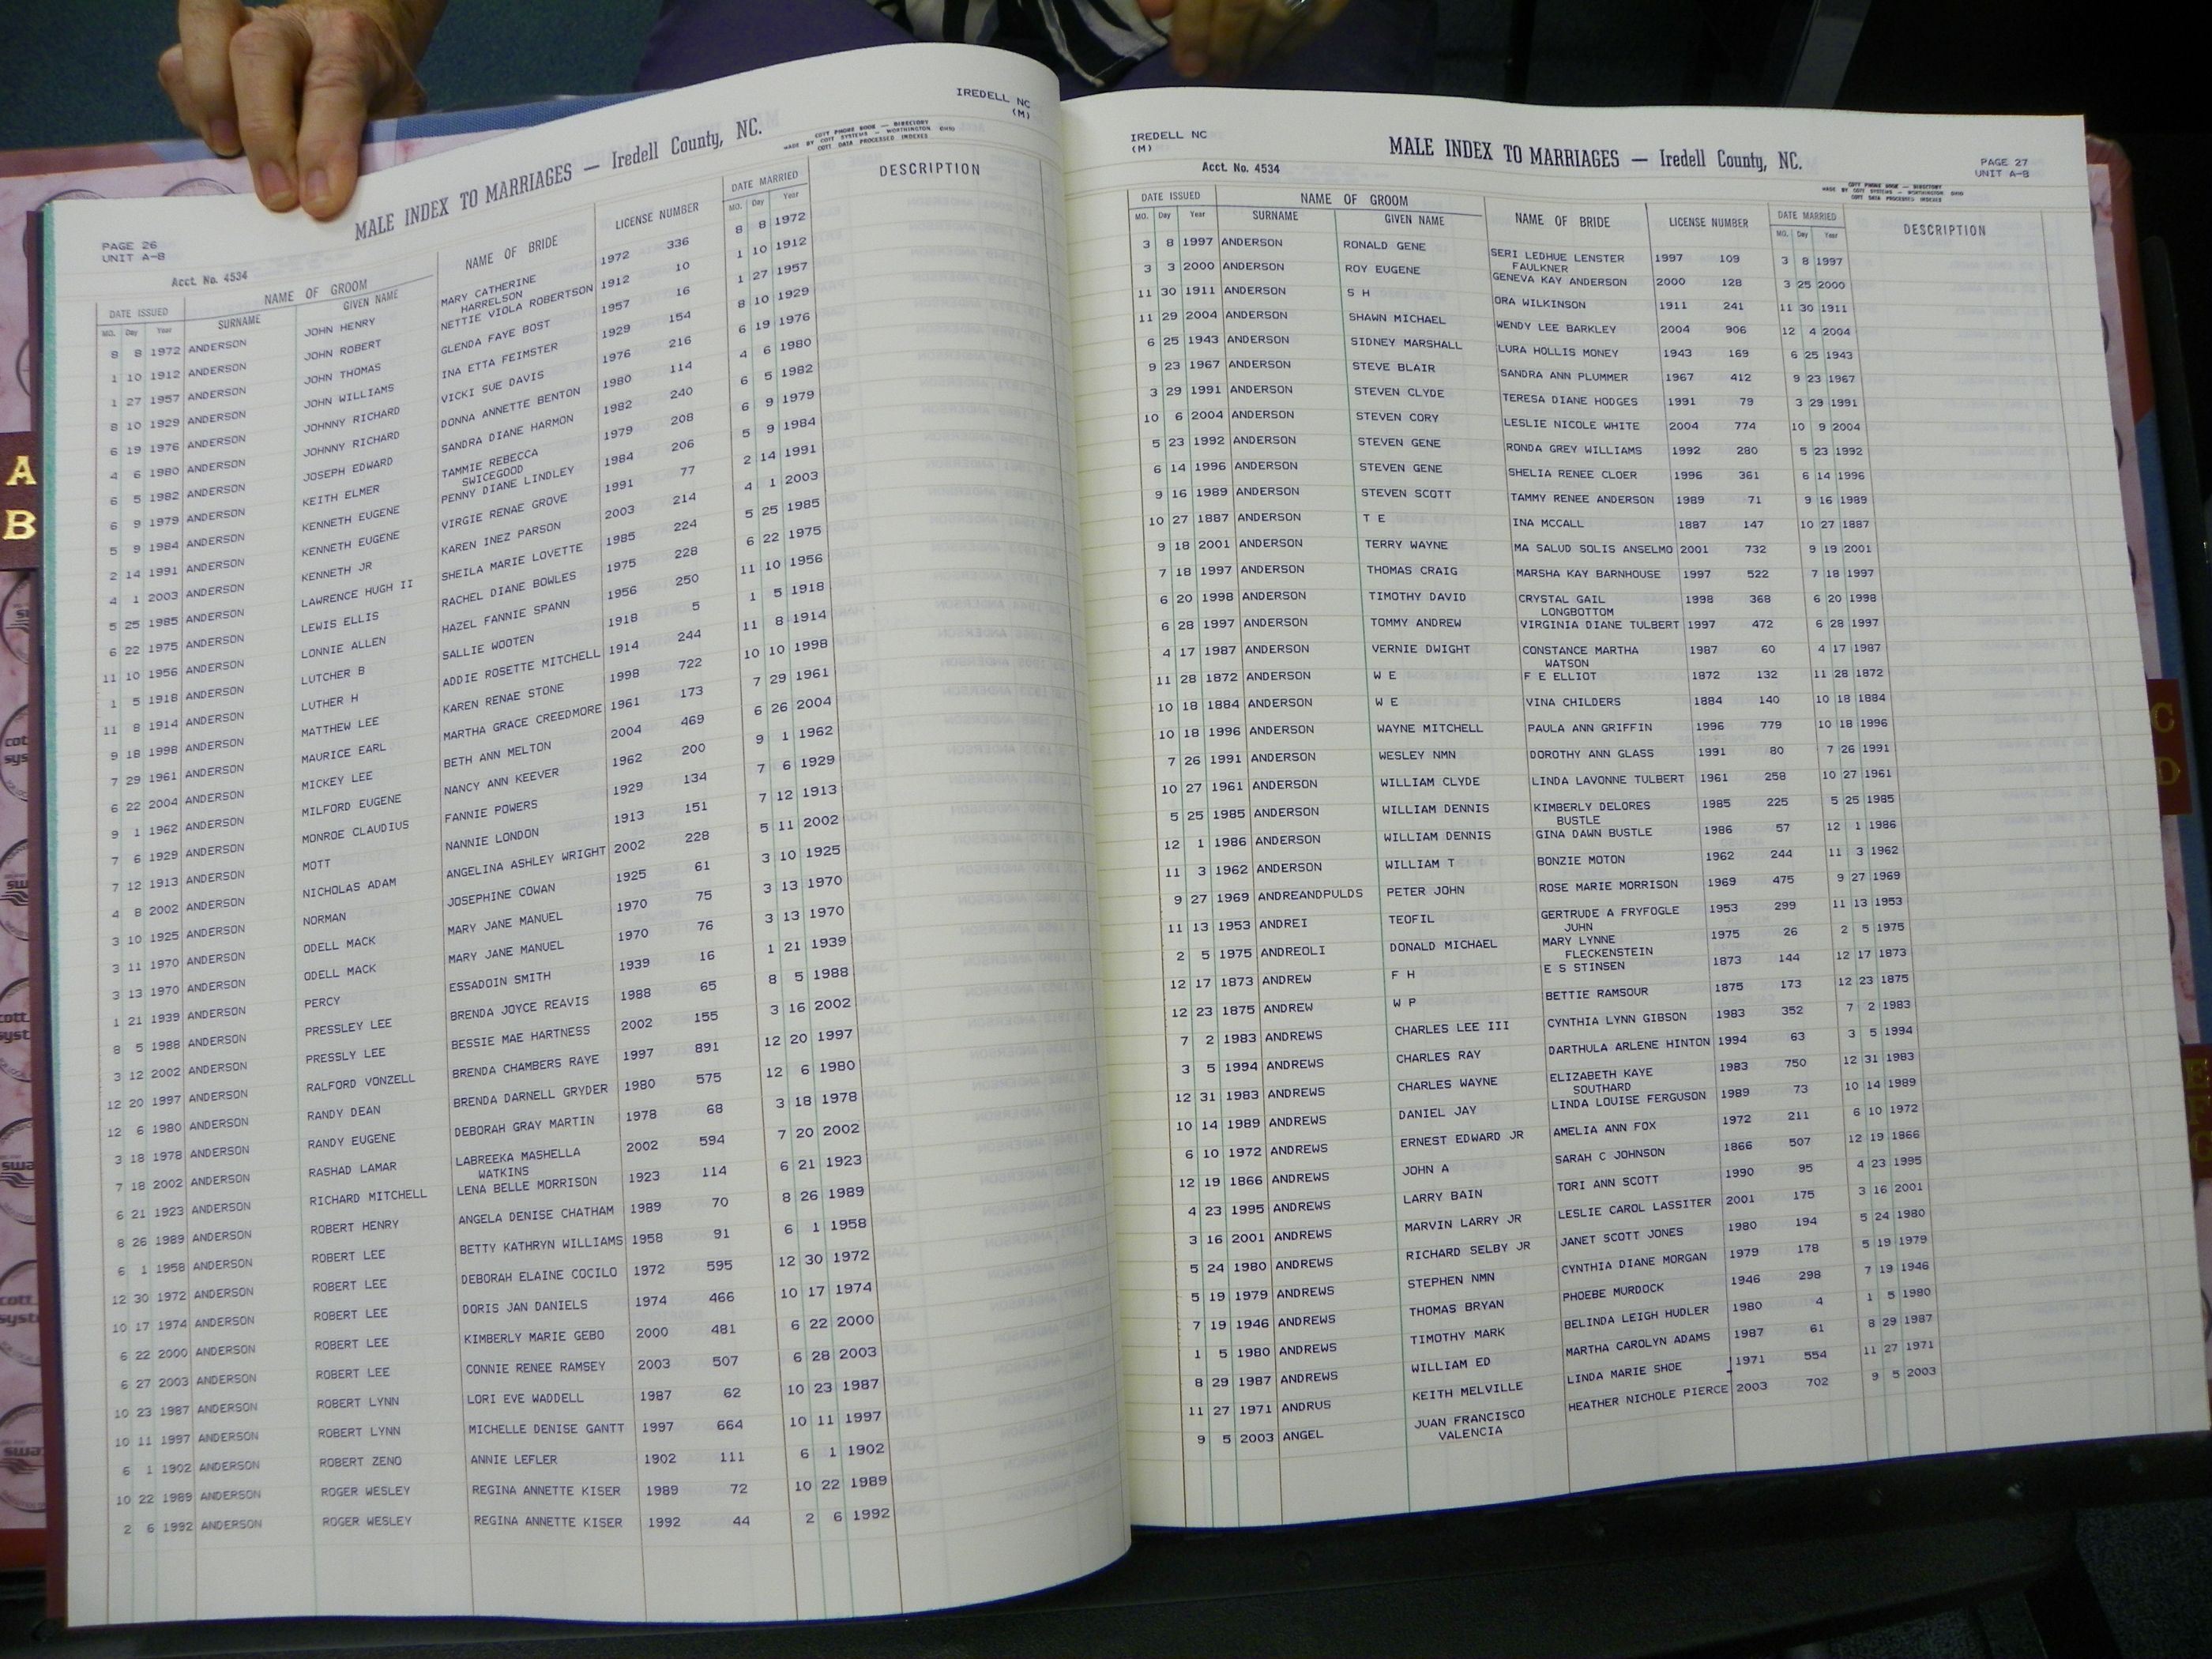 IREDELL NC
(M)
MALE INDEX TO MARRIAGES — Iredell County, NC.
COTT PHONE BOOK — DIRECTORY
MADE BY COTT SYSTEMS — WORTHINGTON OHIO
COTT DATA PROCESSED INDEXES
PAGE 26
UNIT A-B
Acct. No. 4534
DATE ISSUED NAME OF GROOM NAME OF BRIDE LICENSE NUMBER DATE MARRIED DESCRIPTION
MO. Day Year SURNAME GIVEN NAME MO. Day Year
8 8 1972 ANDERSON JOHN HENRY MARY CATHERINE 1972 336 8 8 1972
HARRELSON
1 10 1912 ANDERSON JOHN ROBERT NETTIE VIOLA ROBERTSON 1912 10 1 10 1912
1 27 1957 ANDERSON JOHN THOMAS GLENDA FAYE BOST 1957 16 1 27 1957
8 10 1929 ANDERSON JOHN WILLIAMS INA ETTA FEIMSTER 1929 154 8 10 1929
6 19 1976 ANDERSON JOHNNY RICHARD VICKI SUE DAVIS 1976 216 6 19 1976
4 6 1980 ANDERSON JOHNNY RICHARD DONNA ANNETTE BENTON 1980 114 4 6 1980
6 5 1982 ANDERSON JOSEPH EDWARD SANDRA DIANE HARMON 1982 240 6 5 1982
6 9 1979 ANDERSON KEITH ELMER TAMMIE REBECCA 1979 208 6 9 1979
SWICEGOOD
5 9 1984 ANDERSON KENNETH EUGENE PENNY DIANE LINDLEY 1984 206 5 9 1984
2 14 1991 ANDERSON KENNETH EUGENE VIRGIE RENAE GROVE 1991 77 2 14 1991
4 1 2003 ANDERSON KENNETH JR KAREN INEZ PARSON 2003 214 4 1 2003
5 25 1985 ANDERSON LAWRENCE HUGH II SHEILA MARIE LOVETTE 1985 224 5 25 1985
6 22 1975 ANDERSON LEWIS ELLIS RACHEL DIANE BOWLES 1975 228 6 22 1975
11 10 1956 ANDERSON LONNIE ALLEN HAZEL FANNIE SPANN 1956 250 11 10 1956
1 5 1918 ANDERSON LUTCHER B SALLIE WOOTEN 1918 5 1 5 1918
11 8 1914 ANDERSON LUTHER H ADDIE ROSETTE MITCHELL 1914 244 11 8 1914
9 18 1998 ANDERSON MATTHEW LEE KAREN RENAE STONE 1998 722 10 10 1998
7 29 1961 ANDERSON MAURICE EARL MARTHA GRACE CREEDMORE 1961 173 7 29 1961
6 22 2004 ANDERSON MICKEY LEE BETH ANN MELTON 2004 469 6 26 2004
9 1 1962 ANDERSON MILFORD EUGENE NANCY ANN KEEVER 1962 200 9 1 1962
7 6 1929 ANDERSON MONROE CLAUDIUS FANNIE POWERS 1929 134 7 6 1929
7 12 1913 ANDERSON MOTT NANNIE LONDON 1913 151 7 12 1913
4 8 2002 ANDERSON NICHOLAS ADAM ANGELINA ASHLEY WRIGHT 2002 228 5 11 2002
3 10 1925 ANDERSON NORMAN JOSEPHINE COWAN 1925 61 3 10 1925
3 11 1970 ANDERSON ODELL MACK MARY JANE MANUEL 1970 75 3 13 1970
3 13 1970 ANDERSON ODELL MACK MARY JANE MANUEL 1970 76 3 13 1970
1 21 1939 ANDERSON PERCY ESSADOIN SMITH 1939 16 1 21 1939
8 5 1988 ANDERSON PRESSLEY LEE BRENDA JOYCE REAVIS 1988 65 8 5 1988
3 12 2002 ANDERSON PRESSLY LEE BESSIE MAE HARTNESS 2002 155 3 16 2002
12 20 1997 ANDERSON RALFORD VONZELL BRENDA CHAMBERS RAYE 1997 891 12 20 1997
12 6 1980 ANDERSON RANDY DEAN BRENDA DARNELL GRYDER 1980 575 12 6 1980
3 18 1978 ANDERSON RANDY EUGENE DEBORAH GRAY MARTIN 1978 68 3 18 1978
7 18 2002 ANDERSON RASHAD LAMAR LABREEKA MASHELLA 2002 594 7 20 2002
WATKINS
6 21 1923 ANDERSON RICHARD MITCHELL LENA BELLE MORRISON 1923 114 6 21 1923
8 26 1989 ANDERSON ROBERT HENRY ANGELA DENISE CHATHAM 1989 70 8 26 1989
6 1 1958 ANDERSON ROBERT LEE BETTY KATHRYN WILLIAMS 1958 91 6 1 1958
12 30 1972 ANDERSON ROBERT LEE DEBORAH ELAINE COCILO 1972 595 12 30 1972
10 17 1974 ANDERSON ROBERT LEE DORIS JAN DANIELS 1974 466 10 17 1974
6 22 2000 ANDERSON ROBERT LEE KIMBERLY MARIE GEBO 2000 481 6 22 2000
6 27 2003 ANDERSON ROBERT LEE CONNIE RENEE RAMSEY 2003 507 6 28 2003
10 23 1987 ANDERSON ROBERT LYNN LORI EVE WADDELL 1987 62 10 23 1987
10 11 1997 ANDERSON ROBERT LYNN MICHELLE DENISE GANTT 1997 664 10 11 1997
6 1 1902 ANDERSON ROBERT ZENO ANNIE LEFLER 1902 111 6 1 1902
10 22 1989 ANDERSON ROGER WESLEY REGINA ANNETTE KISER 1989 72 10 22 1989
2 6 1992 ANDERSON ROGER WESLEY REGINA ANNETTE KISER 1992 44 2 6 1992
IREDELL NC
(M)
MALE INDEX TO MARRIAGES — Iredell County, NC.
PAGE 27
UNIT A-B
Acct. No. 4534
COTT PHONE BOOK — DIRECTORY
MADE BY COTT SYSTEMS — WORTHINGTON OHIO
COTT DATA PROCESSED INDEXES
DATE ISSUED NAME OF GROOM NAME OF BRIDE LICENSE NUMBER DATE MARRIED DESCRIPTION
MO. Day Year SURNAME GIVEN NAME MO. Day Year
3 8 1997 ANDERSON RONALD GENE SERI LEDHUE LENSTER 1997 109 3 8 1997
FAULKNER
3 3 2000 ANDERSON ROY EUGENE GENEVA KAY ANDERSON 2000 128 3 25 2000
11 30 1911 ANDERSON S H ORA WILKINSON 1911 241 11 30 1911
11 29 2004 ANDERSON SHAWN MICHAEL WENDY LEE BARKLEY 2004 906 12 4 2004
6 25 1943 ANDERSON SIDNEY MARSHALL LURA HOLLIS MONEY 1943 169 6 25 1943
9 23 1967 ANDERSON STEVE BLAIR SANDRA ANN PLUMMER 1967 412 9 23 1967
3 29 1991 ANDERSON STEVEN CLYDE TERESA DIANE HODGES 1991 79 3 29 1991
10 6 2004 ANDERSON STEVEN CORY LESLIE NICOLE WHITE 2004 774 10 9 2004
5 23 1992 ANDERSON STEVEN GENE RONDA GREY WILLIAMS 1992 280 5 23 1992
6 14 1996 ANDERSON STEVEN GENE SHELIA RENEE CLOER 1996 361 6 14 1996
9 16 1989 ANDERSON STEVEN SCOTT TAMMY RENEE ANDERSON 1989 71 9 16 1989
10 27 1887 ANDERSON T E INA MCCALL 1887 147 10 27 1887
9 18 2001 ANDERSON TERRY WAYNE MA SALUD SOLIS ANSELMO 2001 732 9 19 2001
7 18 1997 ANDERSON THOMAS CRAIG MARSHA KAY BARNHOUSE 1997 522 7 18 1997
6 20 1998 ANDERSON TIMOTHY DAVID CRYSTAL GAIL 1998 368 6 20 1998
LONGBOTTOM
6 28 1997 ANDERSON TOMMY ANDREW VIRGINIA DIANE TULBERT 1997 472 6 28 1997
4 17 1987 ANDERSON VERNIE DWIGHT CONSTANCE MARTHA 1987 60 4 17 1987
WATSON
11 28 1872 ANDERSON W E F E ELLIOT 1872 132 11 28 1872
10 18 1884 ANDERSON W E VINA CHILDERS 1884 140 10 18 1884
10 18 1996 ANDERSON WAYNE MITCHELL PAULA ANN GRIFFIN 1996 779 10 18 1996
7 26 1991 ANDERSON WESLEY NMN DOROTHY ANN GLASS 1991 80 7 26 1991
10 27 1961 ANDERSON WILLIAM CLYDE LINDA LAVONNE TULBERT 1961 258 10 27 1961
5 25 1985 ANDERSON WILLIAM DENNIS KIMBERLY DELORES 1985 225 5 25 1985
BUSTLE
12 1 1986 ANDERSON WILLIAM DENNIS GINA DAWN BUSTLE 1986 57 12 1 1986
11 3 1962 ANDERSON WILLIAM T BONZIE MOTON 1962 244 11 3 1962
9 27 1969 ANDREANDPULDS PETER JOHN ROSE MARIE MORRISON 1969 475 9 27 1969
11 13 1953 ANDREI TEOFIL GERTRUDE A FRYFOGLE 1953 299 11 13 1953
JUHN
2 5 1975 ANDREOLI DONALD MICHAEL MARY LYNNE 1975 26 2 5 1975
FLECKENSTEIN
12 17 1873 ANDREW F H E S STINSEN 1873 144 12 17 1873
12 23 1875 ANDREW W P BETTIE RAMSOUR 1875 173 12 23 1875
7 2 1983 ANDREWS CHARLES LEE III CYNTHIA LYNN GIBSON 1983 352 7 2 1983
3 5 1994 ANDREWS CHARLES RAY DARTHULA ARLENE HINTON 1994 63 3 5 1994
12 31 1983 ANDREWS CHARLES WAYNE ELIZABETH KAYE 1983 750 12 31 1983
SOUTHARD
10 14 1989 ANDREWS DANIEL JAY LINDA LOUISE FERGUSON 1989 73 10 14 1989
6 10 1972 ANDREWS ERNEST EDWARD JR AMELIA ANN FOX 1972 211 6 10 1972
12 19 1866 ANDREWS JOHN A SARAH C JOHNSON 1866 507 12 19 1866
4 23 1995 ANDREWS LARRY BAIN TORI ANN SCOTT 1990 95 4 23 1995
3 16 2001 ANDREWS MARVIN LARRY JR LESLIE CAROL LASSITER 2001 175 3 16 2001
5 24 1980 ANDREWS RICHARD SELBY JR JANET SCOTT JONES 1980 194 5 24 1980
5 19 1979 ANDREWS STEPHEN NMN CYNTHIA DIANE MORGAN 1979 178 5 19 1979
7 19 1946 ANDREWS THOMAS BRYAN PHOEBE MURDOCK 1946 298 7 19 1946
1 5 1980 ANDREWS TIMOTHY MARK BELINDA LEIGH HUDLER 1980 4 1 5 1980
8 29 1987 ANDREWS WILLIAM ED MARTHA CAROLYN ADAMS 1987 61 8 29 1987
11 27 1971 ANDRUS KEITH MELVILLE LINDA MARIE SHOE 1971 554 11 27 1971
9 5 2003 ANGEL JUAN FRANCISCO HEATHER NICHOLE PIERCE 2003 702 9 5 2003
VALENCIA
A
B
C
D